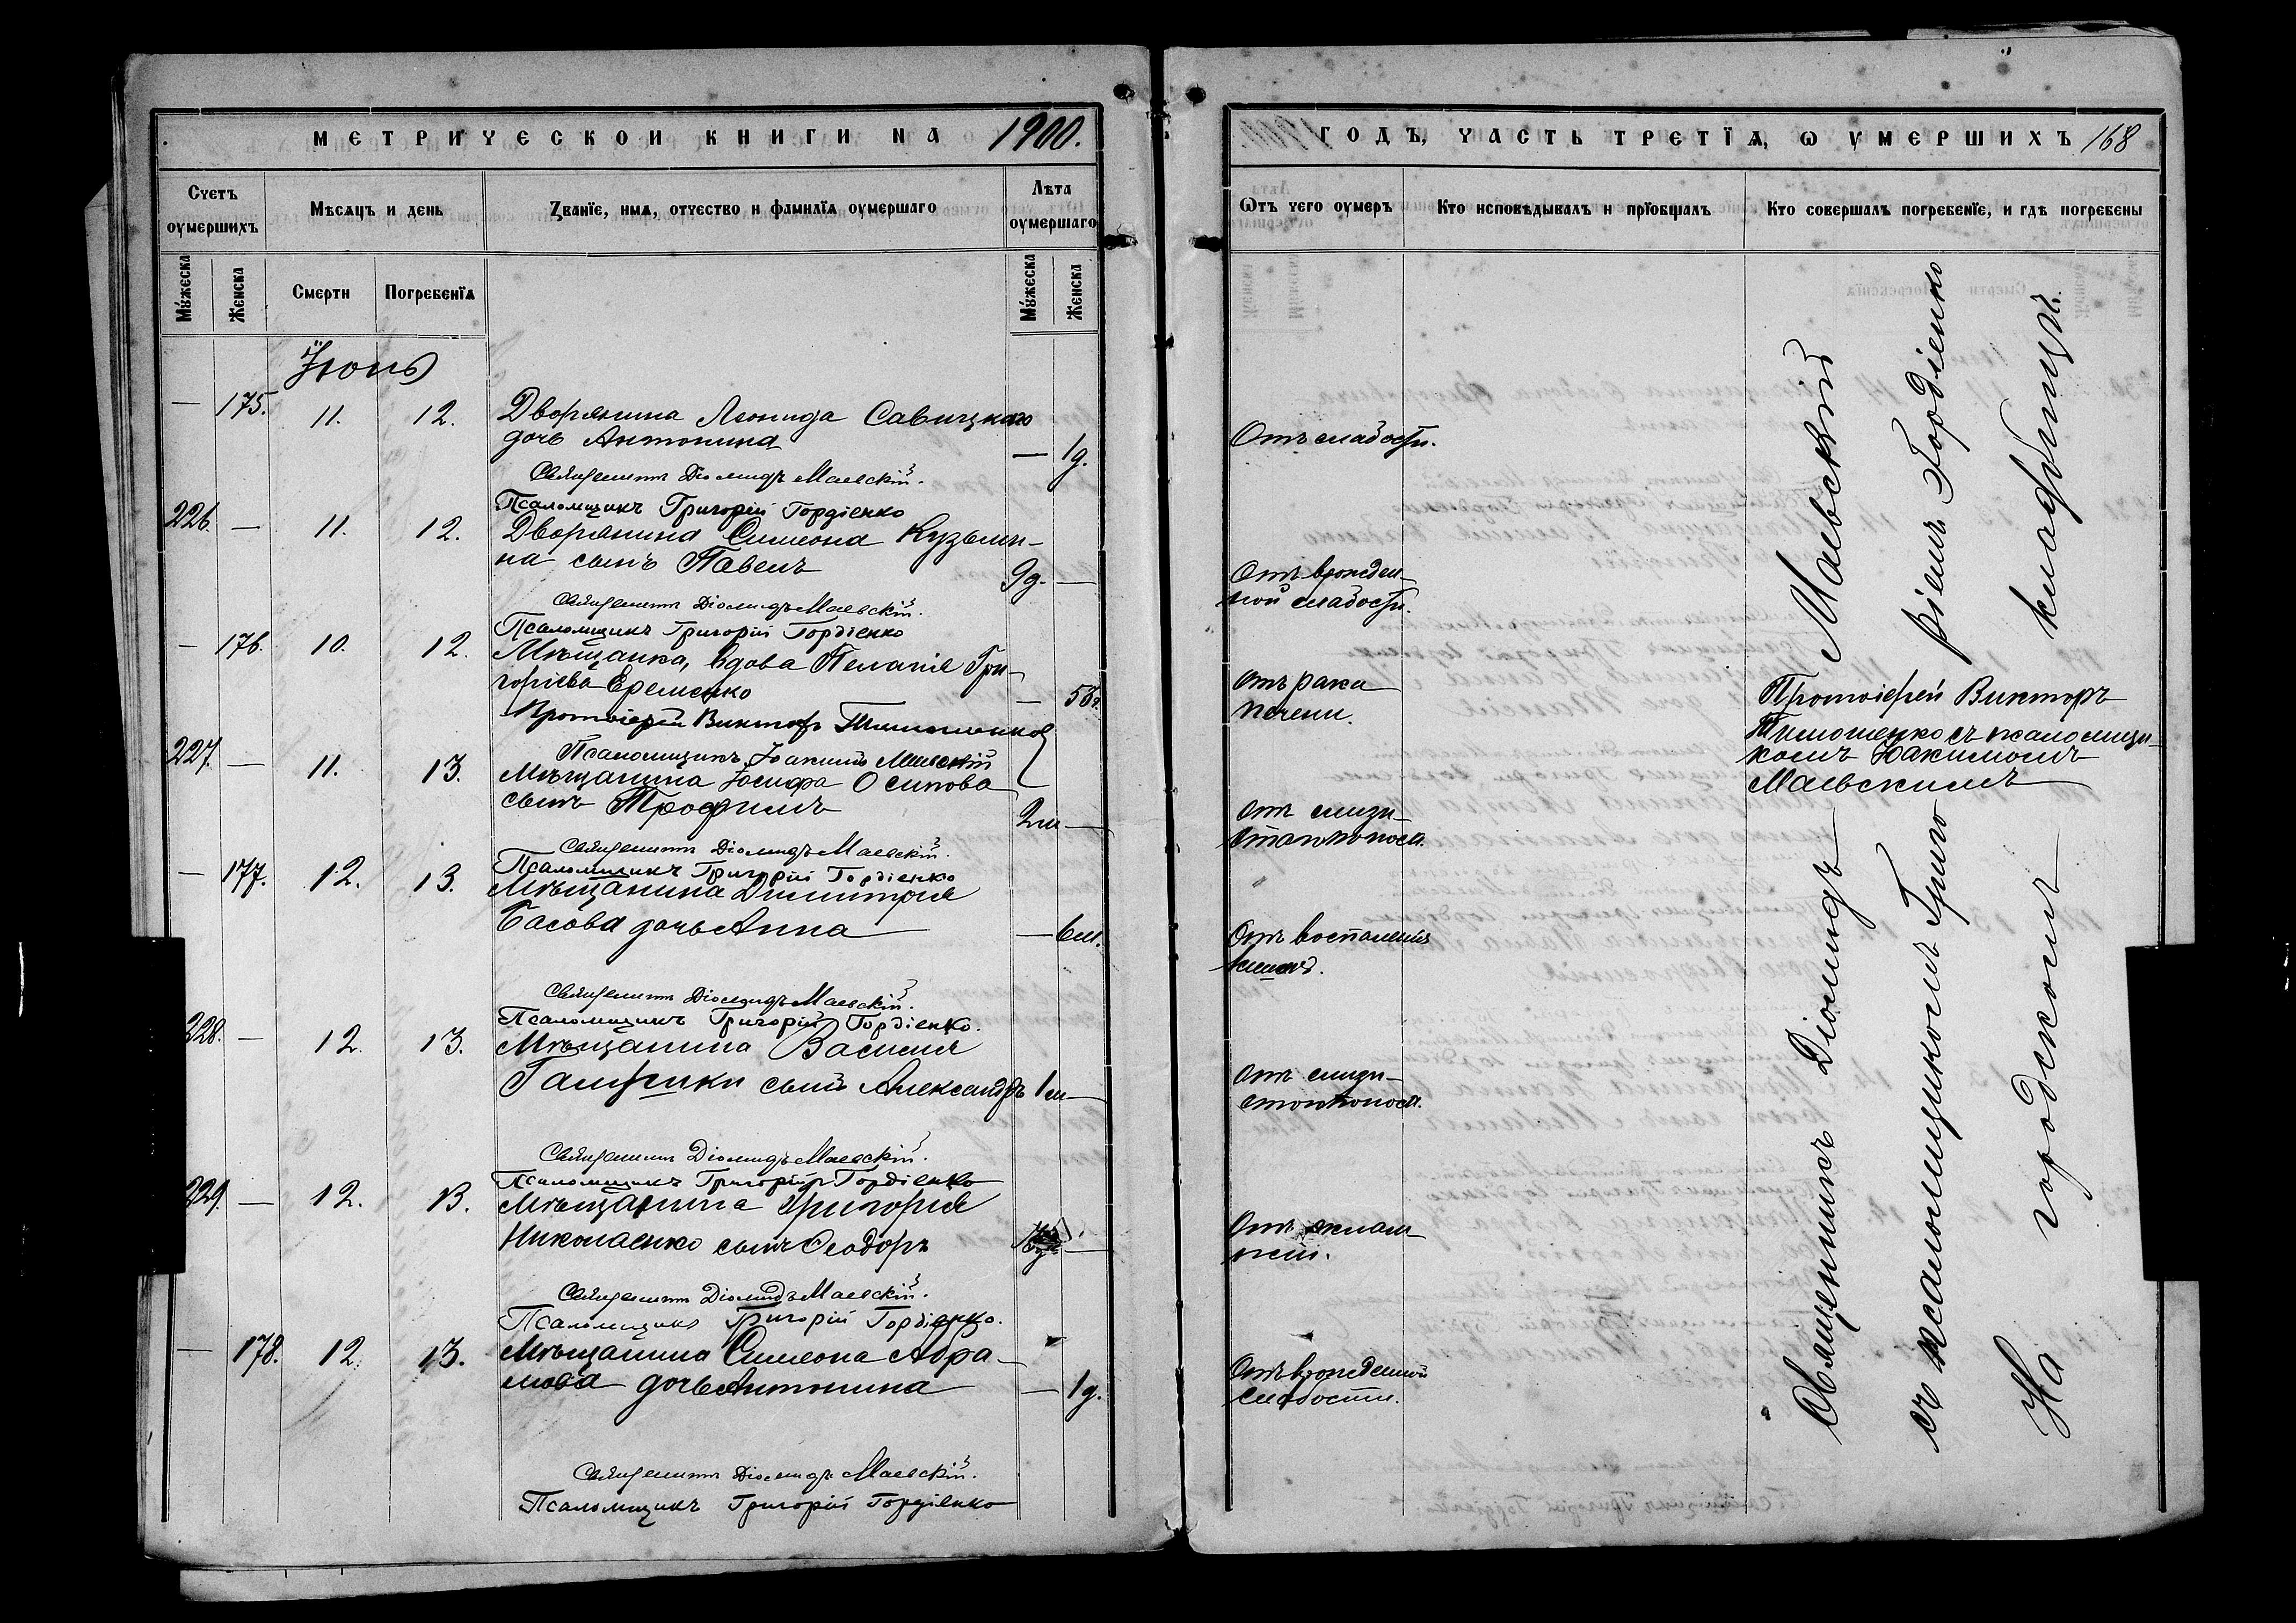 МЕТРИЧЕСКОЙ КНИГИ НА 1900.
Счетъ оумершихъ
Мѣсяцъ и день
Званїе, имя, отчество и фамилїя оумершаго
Лѣта оумершаго
Мужеска
Женска
Смерти
Погребенїя
Мужеска
Женска
Іюнь
— 175. 11. 12. Дворянина Леонида Савицкаго
дочь Антонина — 1д.
Священникъ Діомидъ Маевскій.
Псаломщикъ Григорій Гордіенко
226. — 11. 12. Дворянина Симеона Кузьми-
на сынъ Павелъ 9д. —
Священникъ Діомидъ Маевскій.
Псаломщикъ Григорій Гордіенко
— 176. 10. 12. Мѣщанка, вдова Пелагія Гри-
горіева Еременко —
Протоіерей Викторъ Тимошенко
Псаломщикъ Іоакимъ Маевскій
227. — 11. 13. Мѣщанина Іосифа Осипова
сынъ Трофимъ 2м —
Священникъ Діомидъ Маевскій.
Псаломщикъ Григорій Гордіенко
— 177. 12. 13. Мѣщанина Димитрія
Басова дочь Анна — 6м.
Священникъ Діомидъ Маевскій.
Псаломщикъ Григорій Гордіенко.
228. — 12. 13. Мѣщанина Василія
сынъ Александръ 1м —
Священникъ Діомидъ Маевскій.
Псаломщикъ Григорій Гордіенко
229. — 12. 13. Мѣщанина Григорія
Николаенко сынъ Ѳеодоръ —
Священникъ Діомидъ Маевскій.
Псаломщикъ Григорій Гордіенко.
— 178. 12. 13. Мѣщанина Симеона Абра-
мова дочь Антонина — 1д.
Священникъ Діомидъ Маевскій.
Псаломщикъ Григорій Гордіенко
ГОДЪ, ЧАСТЬ ТРЕТЇЯ, Ѡ УМЕРШИХЪ 168
Ѿтъ чего оумеръ
Кто исповѣдывалъ и прїобщалъ
Кто совершалъ погребенїе, и гдѣ погребены
Отъ слабости.
Отъ врожден-
ной слабости.
Отъ рака
печени.
Отъ слизи-
стаго поноса.
Отъ воспаленія
кишекъ.
Отъ слизи-
стаго поноса.
Отъ эклам-
псіи.
Отъ врожденной
слабости.
Протоіерей Викторъ
Тимошенко съ псаломщи-
комъ Іоакимомъ
Маевскимъ
Священникъ Діомидъ Маевскій
съ псаломщикомъ Григо ріемъ Гордіенко
На городскомъ кладбищѣ.